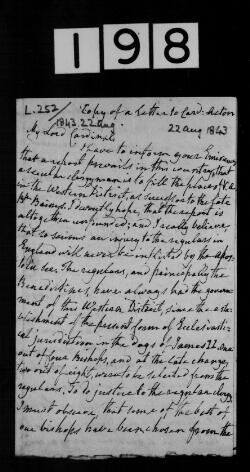 198
L. 252/ Copy of a Letter to Card: Acton
1843 22 Aug 22 Aug 1843
My Lord Cardinal
I have to inform your Eminence
that a report prevails in this country, that
a secular clergyman is to fill the place of V.A.
in the Western District, as successor to the late
Dr Baines. I devoutly hope, that the report is
altogether unfounded; and I really believe,
that so serious an injury to the regulars in
England will never be inflicted by the Apos-
tolic See. The regulars, and principally the
Benedictines, have always had the govern-
ment of this Western District, since the esta-
blishment of the present form of Ecclesiasti-
cal jurisdiction in the days of James 2d. One
out of four Bishops, and at the late change,
two out of eight, used to be selected from the
regulars. To do justice to the regular clergy,
I must observe, that some of the best of
our bishops have been chosen from the